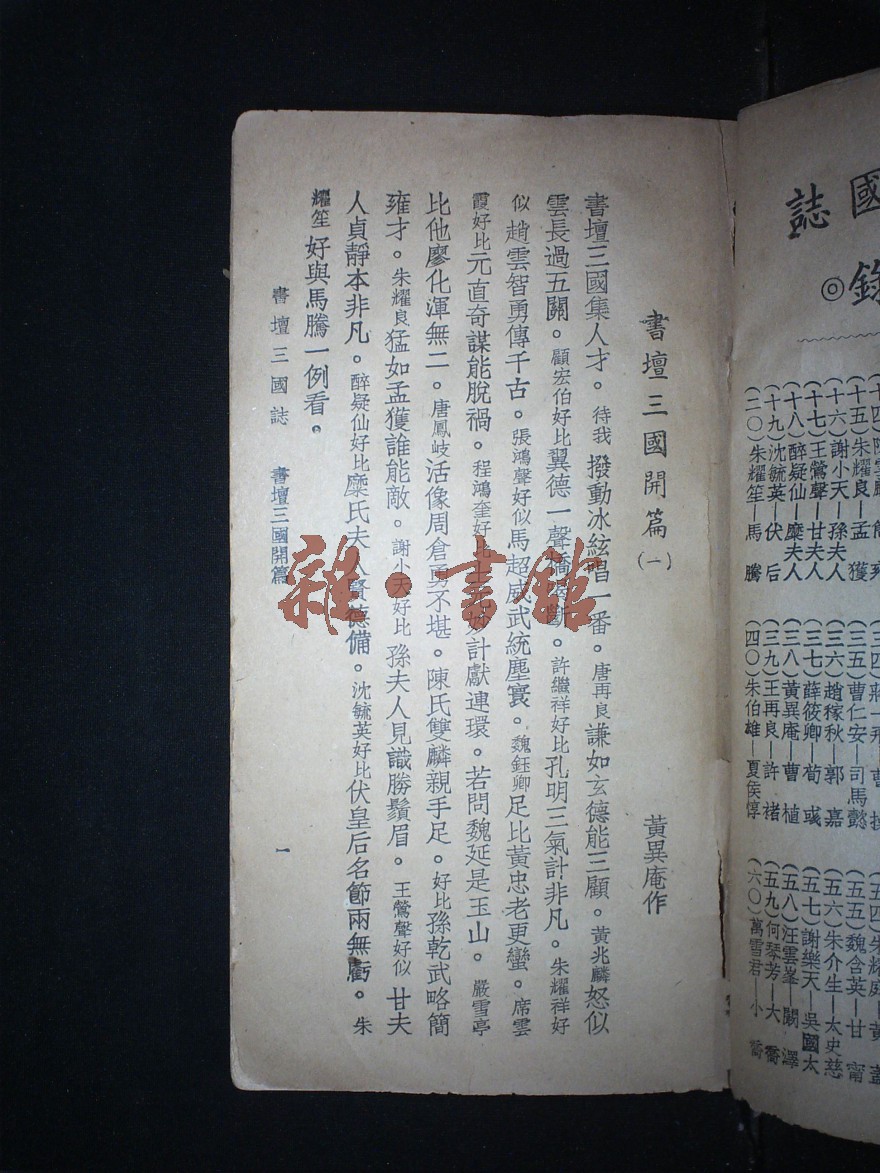 國
誌
錄◎
(十五)朱耀良—孟獲
(十六)謝小天—孫夫人
(十七)王鶯聲—甘夫人
(十八)醉疑仙—糜夫人
(十九)沈毓英—伏后
(二〇)朱耀笙—馬騰
(三五)曹仁安—司馬懿
(三六)趙稼秋—郭嘉
(三七)薛筱卿—荀彧
(三八)黃異庵—曹植
(三九)王再良—許褚
(四〇)朱伯雄—夏侯惇
(五五)魏含英—甘甯
(五六)朱介生—太史慈
(五七)謝樂天—吳國太
(五八)汪雲峯—闞澤
(五九)何琴芳—大喬
(六〇)萬雪君—小喬
書壇三國開篇(一) 黃異庵作
書壇三國集人才。待我撥動冰絃唱一番。唐再良謙如玄德能三顧。黃兆麟怒似
雲長過五關。顧宏伯好比翼德一聲橋梁斷。許繼祥好比孔明三氣計非凡。朱耀祥好
似趙雲智勇傳千古。張鴻聲好似馬超威武統塵寰。魏鈺卿足比黃忠老更蠻。席雲
霞好比元直奇謀能脫禍。程鴻奎好比士元妙計獻連環。若問魏延是玉山。嚴雪亭
比他廖化渾無二。唐鳳岐活像周倉勇不堪。陳氏雙麟親手足。好比孫乾武略簡
雍才。朱耀良猛如孟獲誰能敵。謝小天好比孫夫人見識勝鬚眉。王鶯聲好似甘夫
人貞靜本非凡。醉疑仙好比糜氏夫人賢德備。沈毓英好比伏皇后名節兩無虧。朱
耀笙好與馬騰一例看。
書壇三國誌 書壇三國開篇 一
雜·書館